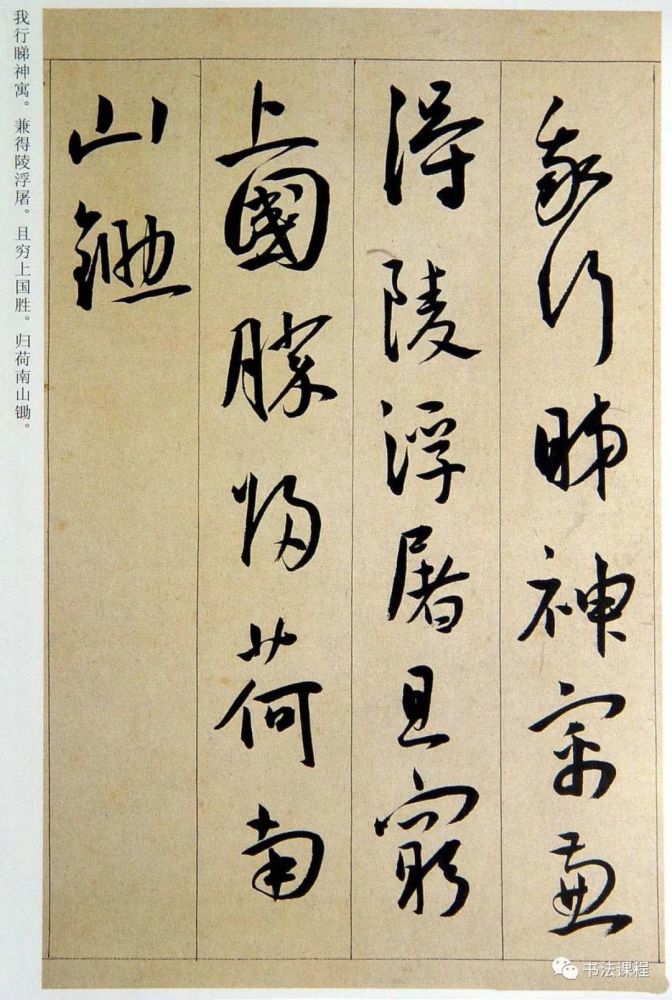 我行睇神寓兼
得陵浮屠且窮
上國勝歸荷南
山鋤
我行睇神寓。兼得陵浮屠。且穷上国胜。归荷南山锄。
书法课程